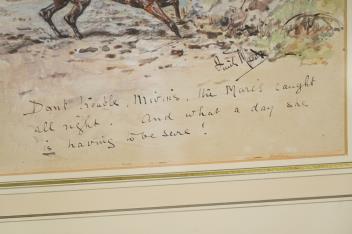 Don't trouble, Missis, the Mare's caught
all right. And what a day she
is having to be sure!